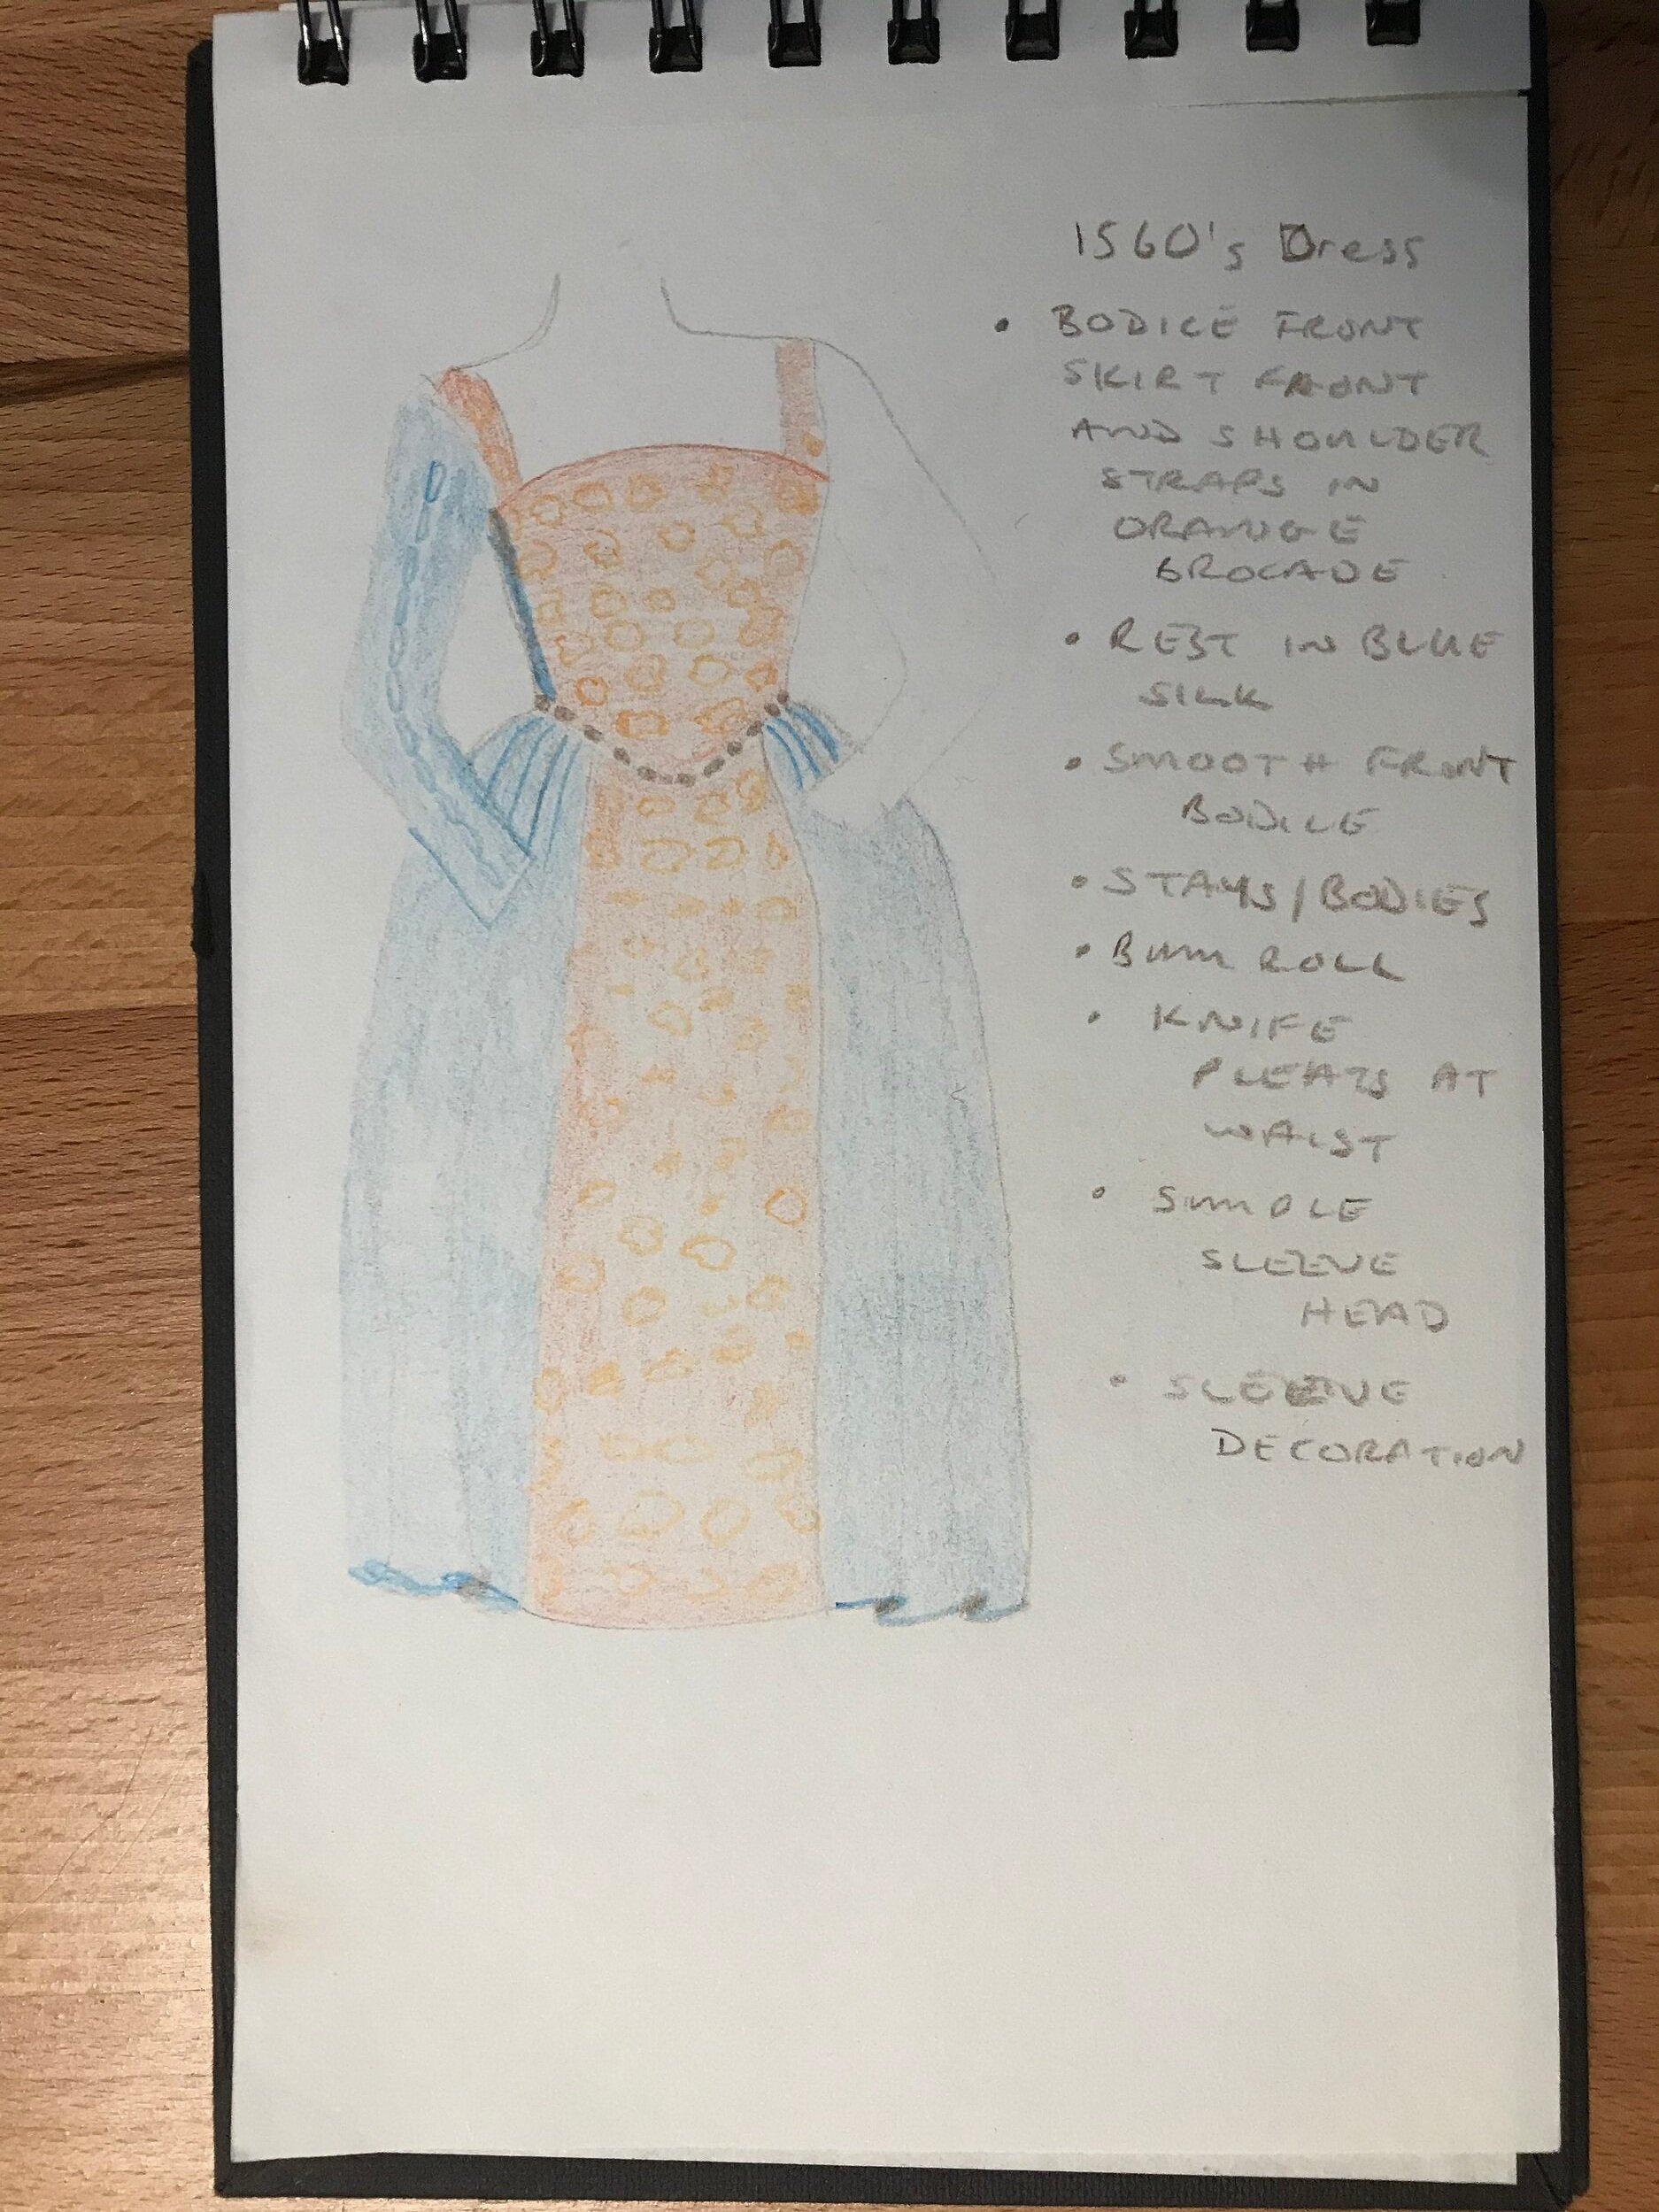 1560's Dress
• BODICE FRONT
SKIRT FRONT
AND SHOULDER
STRAPS IN
ORANGE
BROCADE
• REST IN BLUE
SILK
• SMOOTH FRONT
BODICE
• STAYS/BODIES
• BUM ROLL
• KNIFE
PLEATS AT
WAIST
• SIMPLE
SLEEVE
HEAD
• SLEEVE
DECORATION